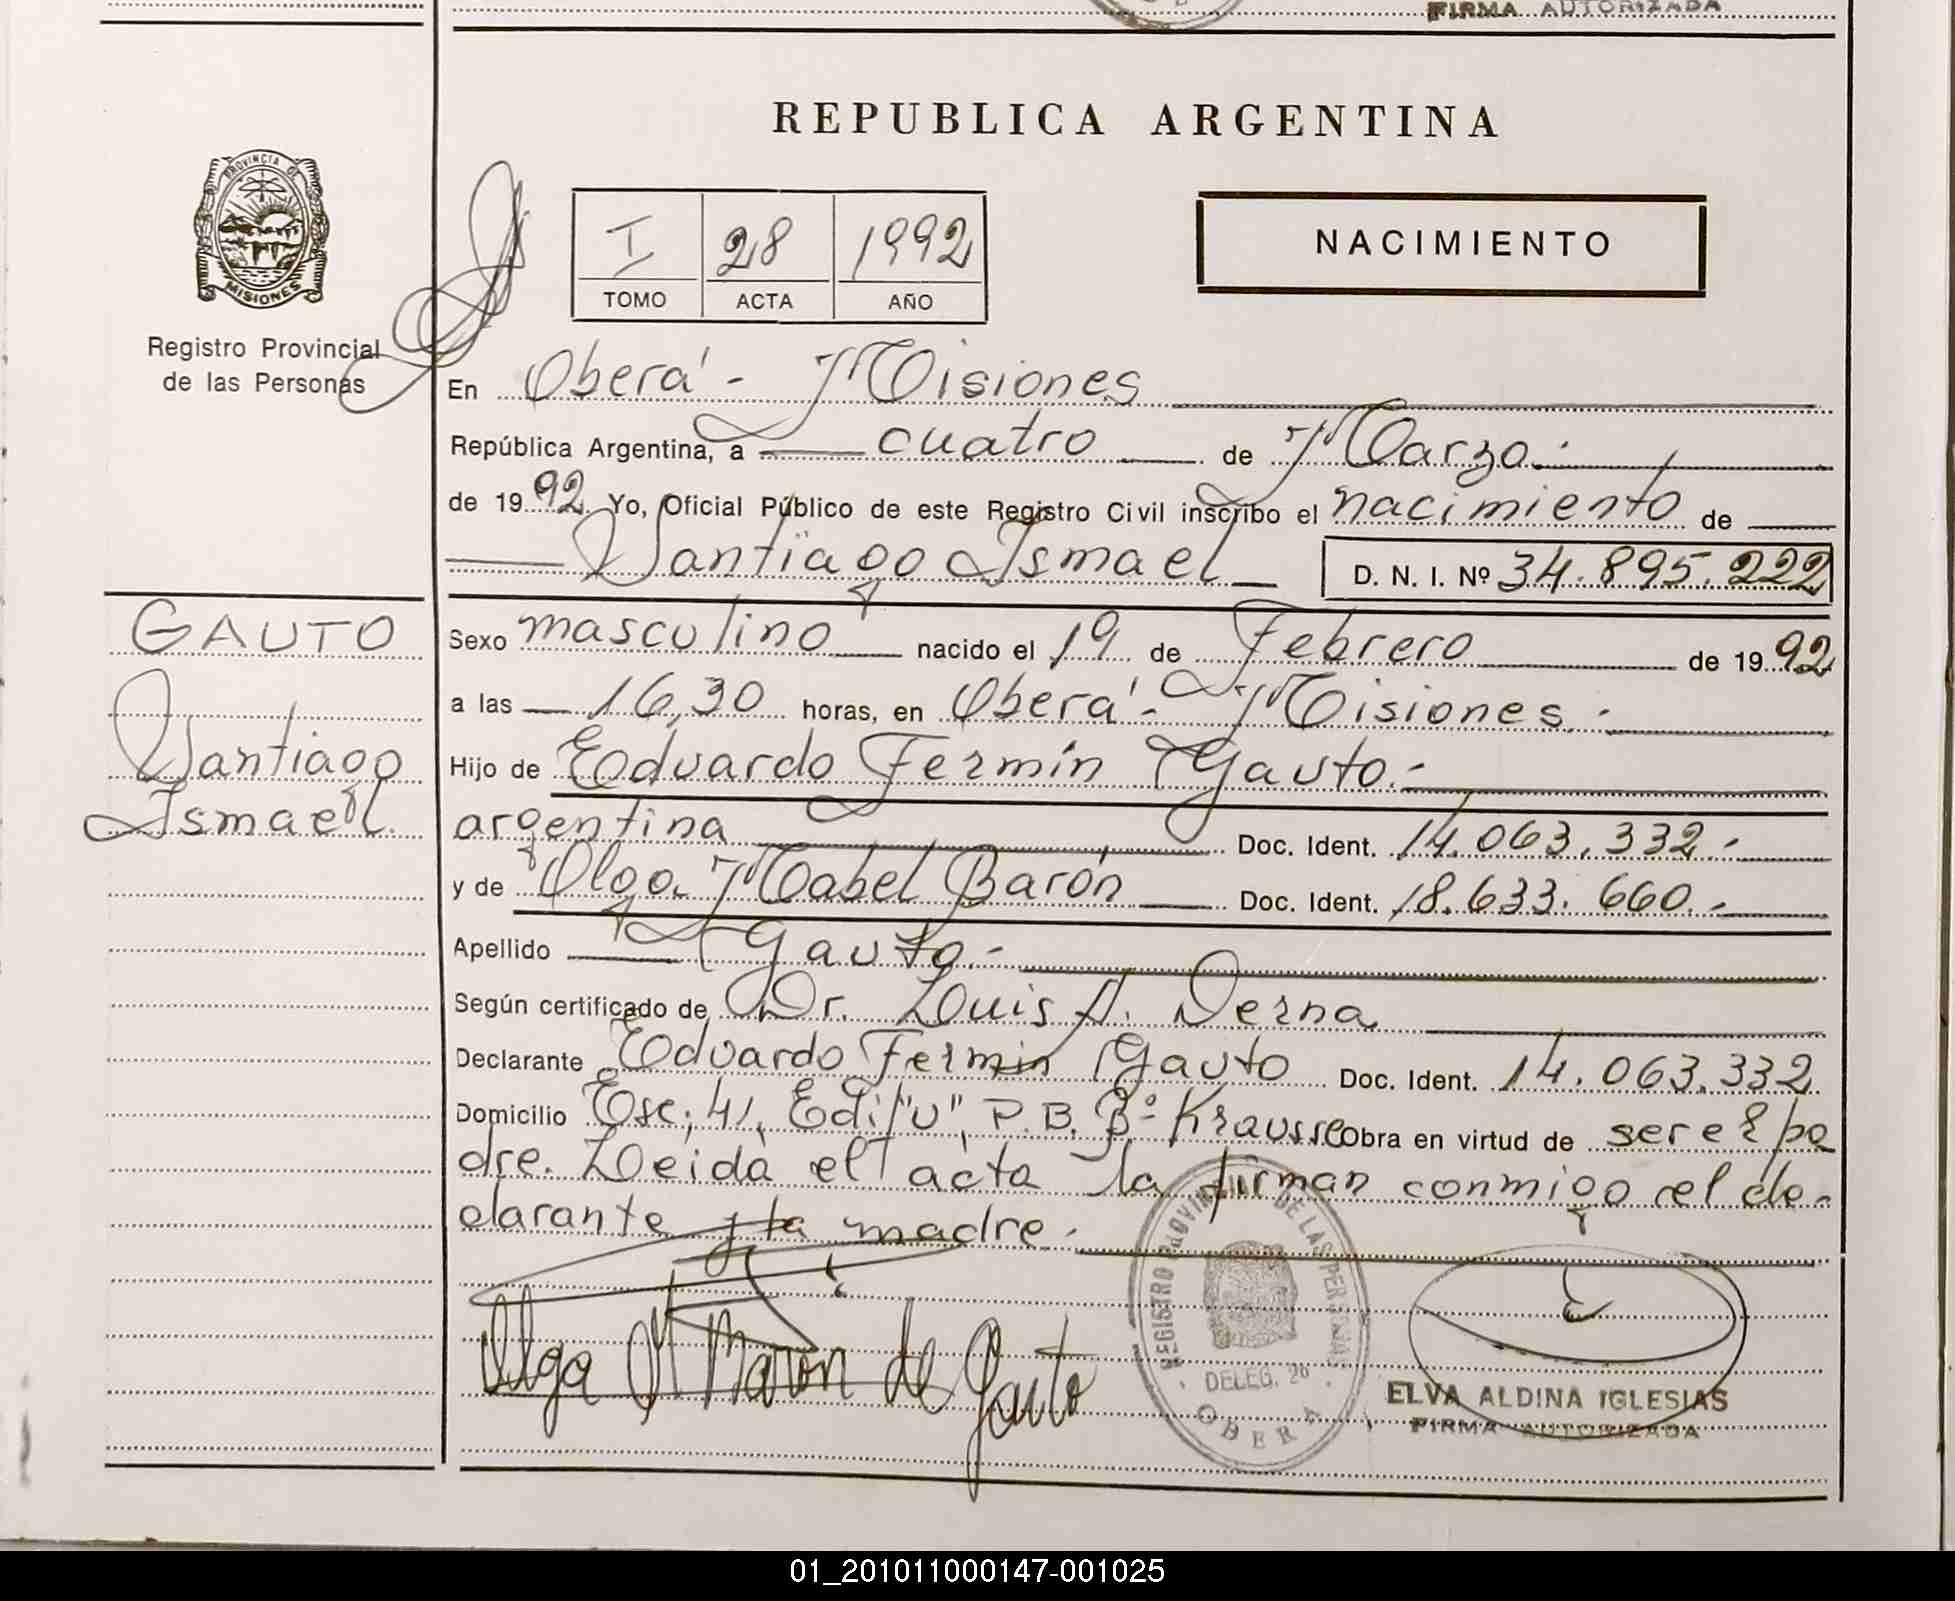 FIRMA AUTORIZADA
REPUBLICA ARGENTINA
PROVINCIA DE
MISIONES
Registro Provincial
de las Personas
I 28 1992
TOMO ACTA AÑO
NACIMIENTO
En Oberá - Misiones
República Argentina, a cuatro de Marzo.-
de 1992. Yo, Oficial Público de este Registro Civil inscribo el nacimiento de
Santiago Ismael D. N. I. Nº 34.895.222
GAUTO
Santiago
Ismael.
Sexo masculino nacido el 19 de Febrero de 1992
a las 16,30 horas, en Oberá - Misiones.-
Hijo de Eduardo Fermín Gauto.-
argentina Doc. Ident. 14.063.332.-
y de Olga Mabel Barón Doc. Ident. 18.633.660.-
Apellido Gauto.-
Según certificado de Dr. Luis A. Derna
Declarante Eduardo Fermin Gauto Doc. Ident. 14.063.332
Domicilio Esc; 41, Edif "U", P.B. Bº Krausse Obra en virtud de ser el pa
dre. Leida el acta la firman conmigo el de-
clarante y la madre.-
Olga M Barón de Gauto
REGISTRO PROVINCIAL DE LAS PERSONAS
DELEG. 26
OBERA
ELVA ALDINA IGLESIAS
FIRMA AUTORIZADA
01_201011000147-001025